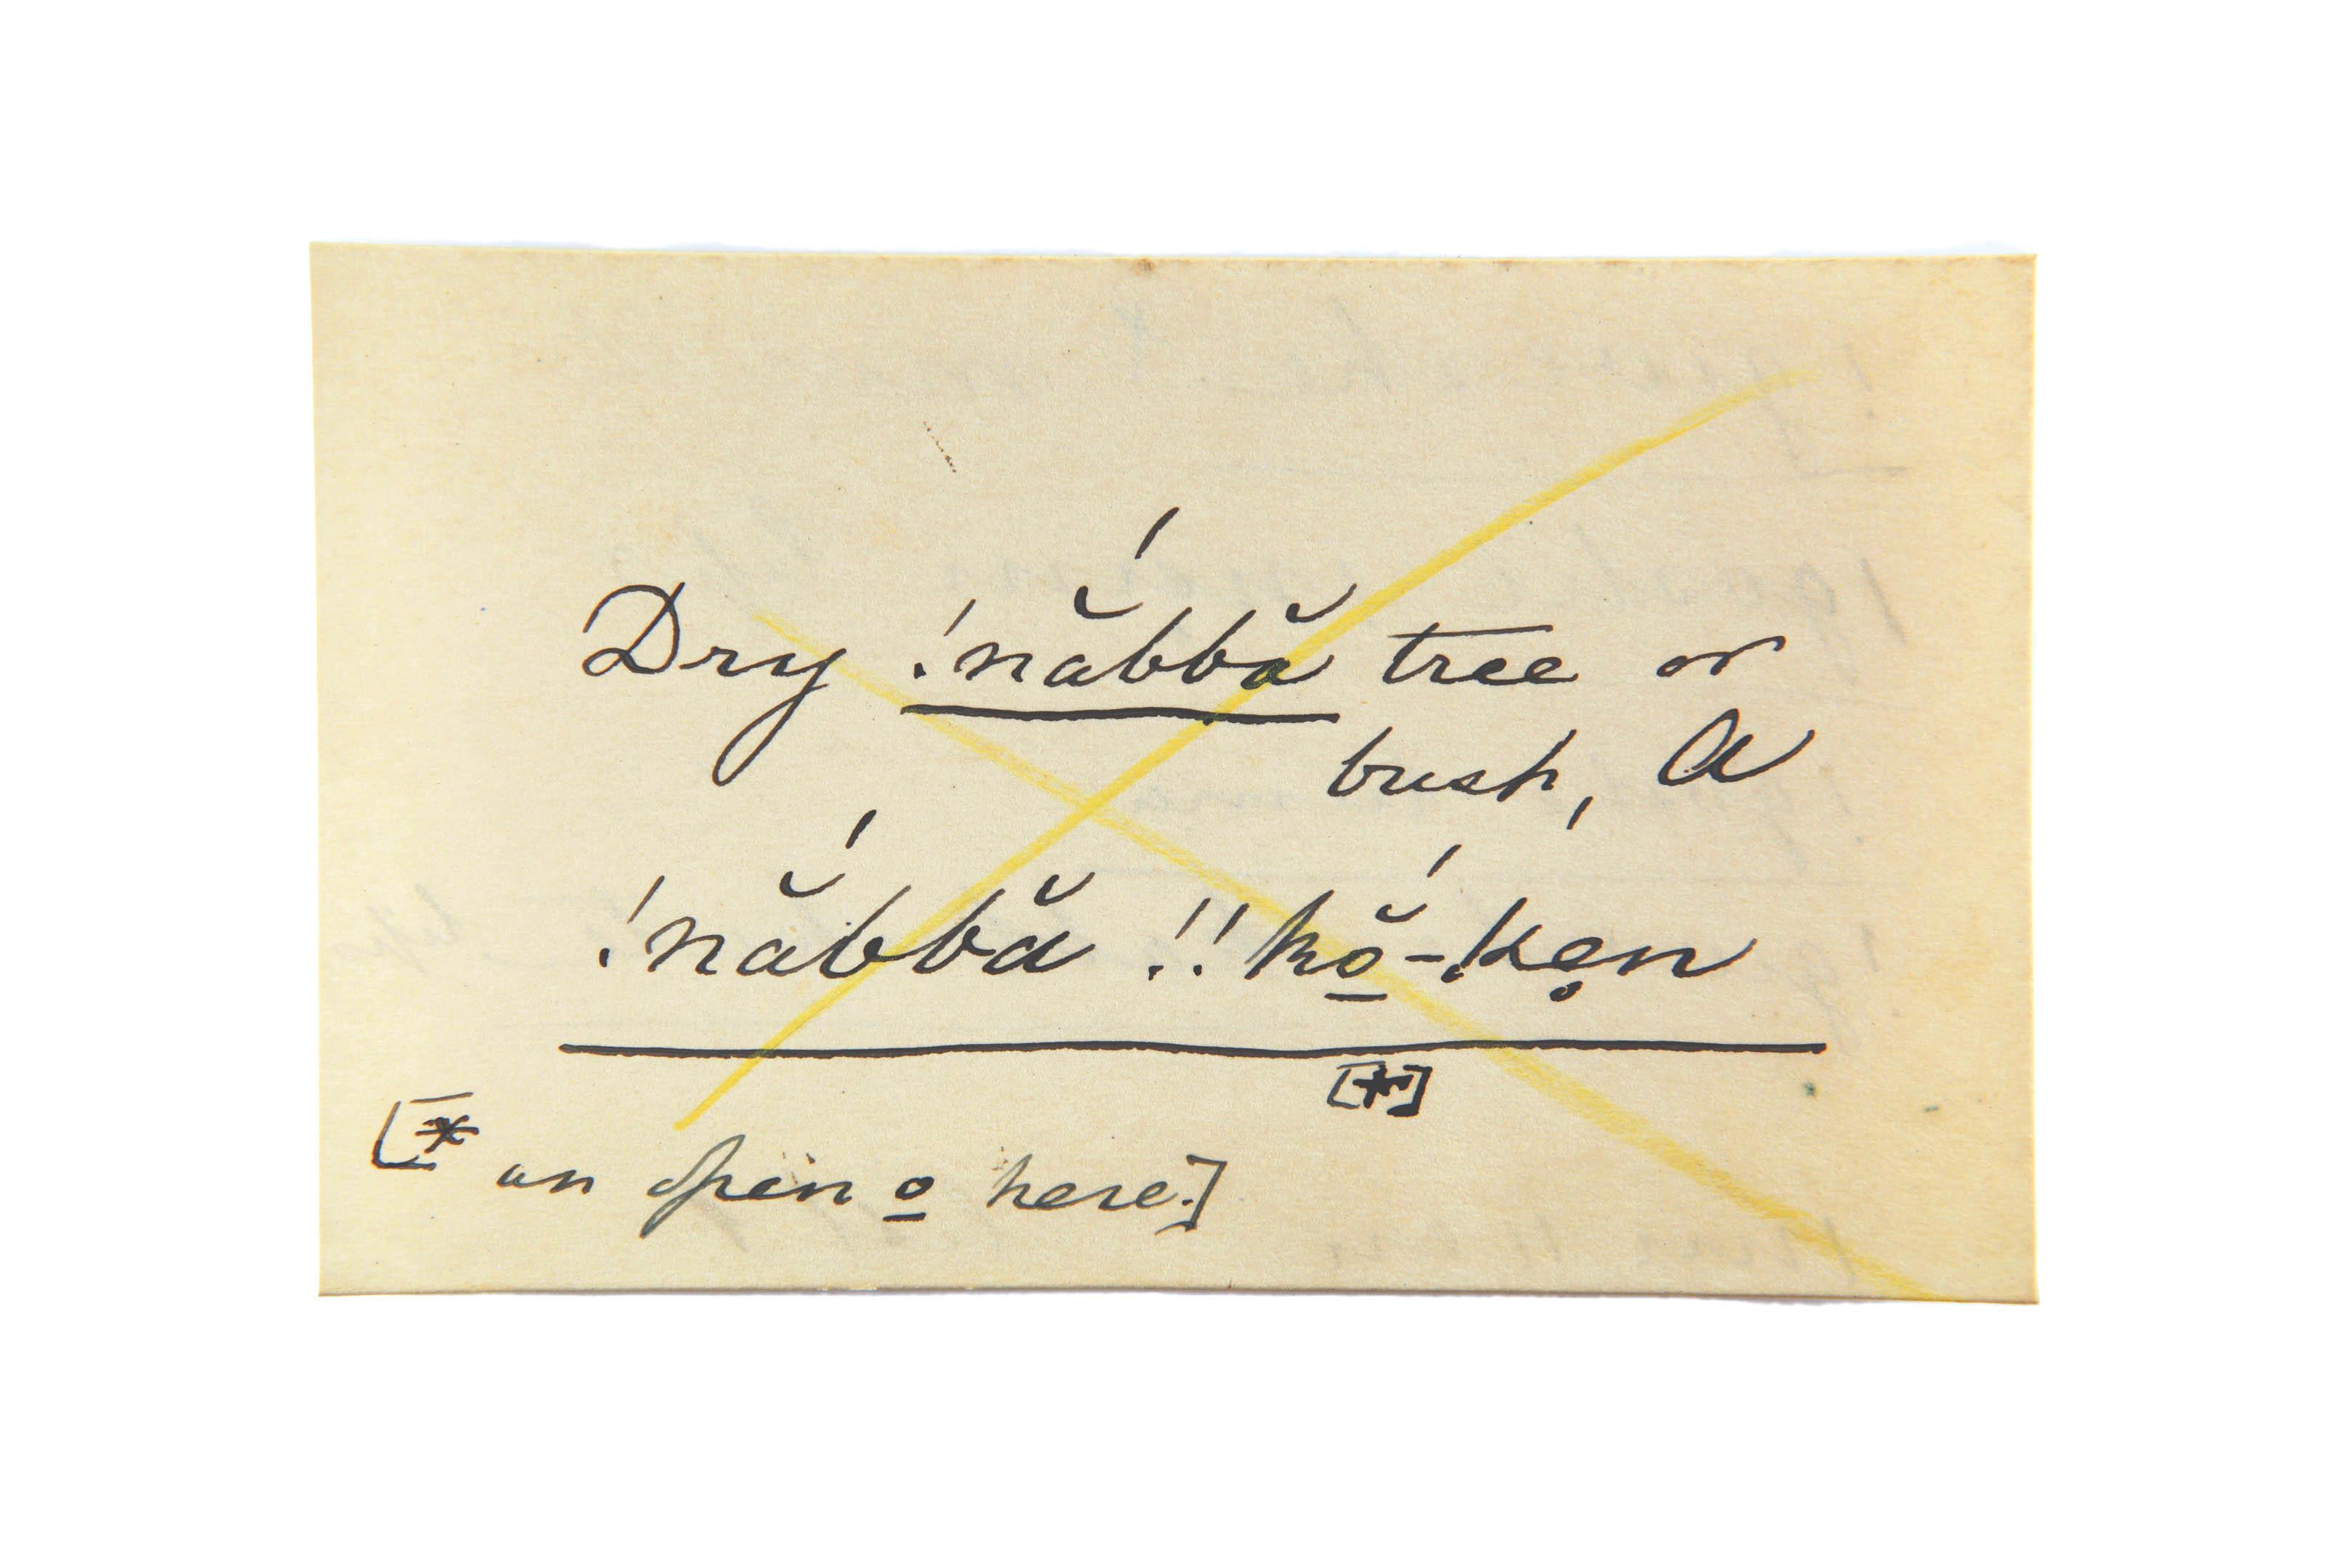 Dry !nắbbă tree or
bush, A
!nắbbă !!kŏ̱́-ken̥
[*]
[* an open o̱ here.]